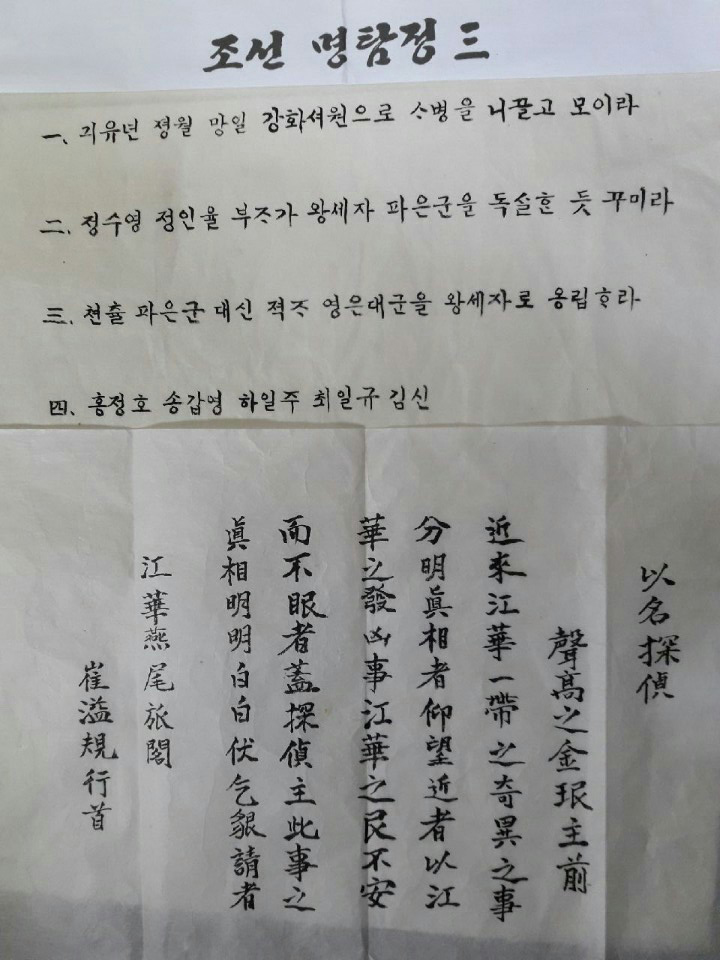 조선 명탐정 三
一. 긔유년 졍월 망일 강화셔원으로 ᄉᆞ병을 니끌고 모이라
二. 정수영 정인율 부ᄌᆞ가 왕세자 파은군을 독ᄉᆞᆯᄒᆞᆫ 듯 꾸미라
三. 쳔츌 파은군 대신 젹ᄌᆞ 영은대군을 왕세자로 옹립ᄒᆞ라
四. 홍정호 송갑영 하일주 최일규 김신
以名探偵
聲高之金珉主前
近來江華一帶之奇異之事
分明眞相者仰望近者以江
華之發凶事江華之民不安
而不眠者蓋探偵主此事之
眞相明明白白伏乞懇請者
江華燕尾旅閣
崔溢規行首